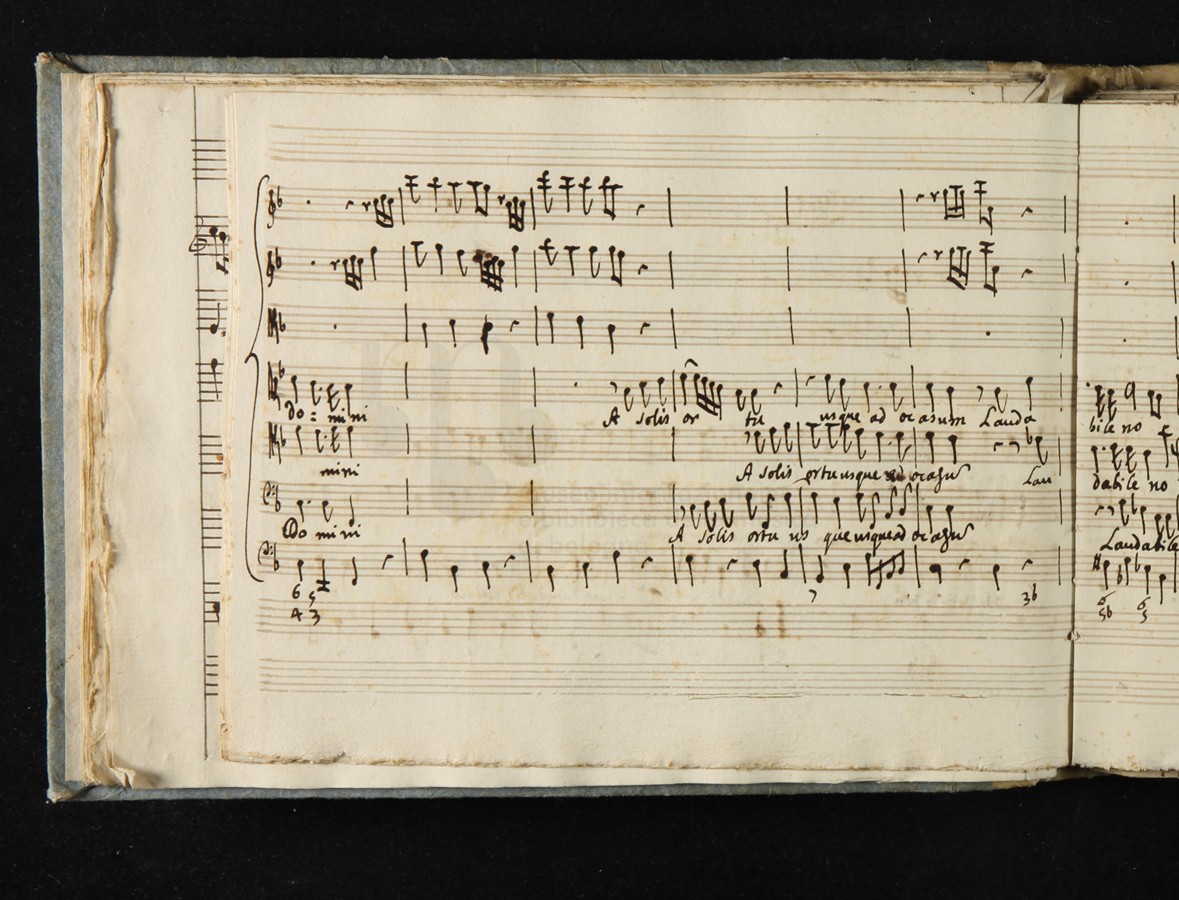 Do = mini
A solis or tu usque ad ocasum Lauda
bile no
mini
A solis ortu usque ad ocasu Lau
dabile no
Do mini
A solis ortu us que usque ad ocasu
Laudabile
7
3b
6 5
4 3
6
5b
6
5